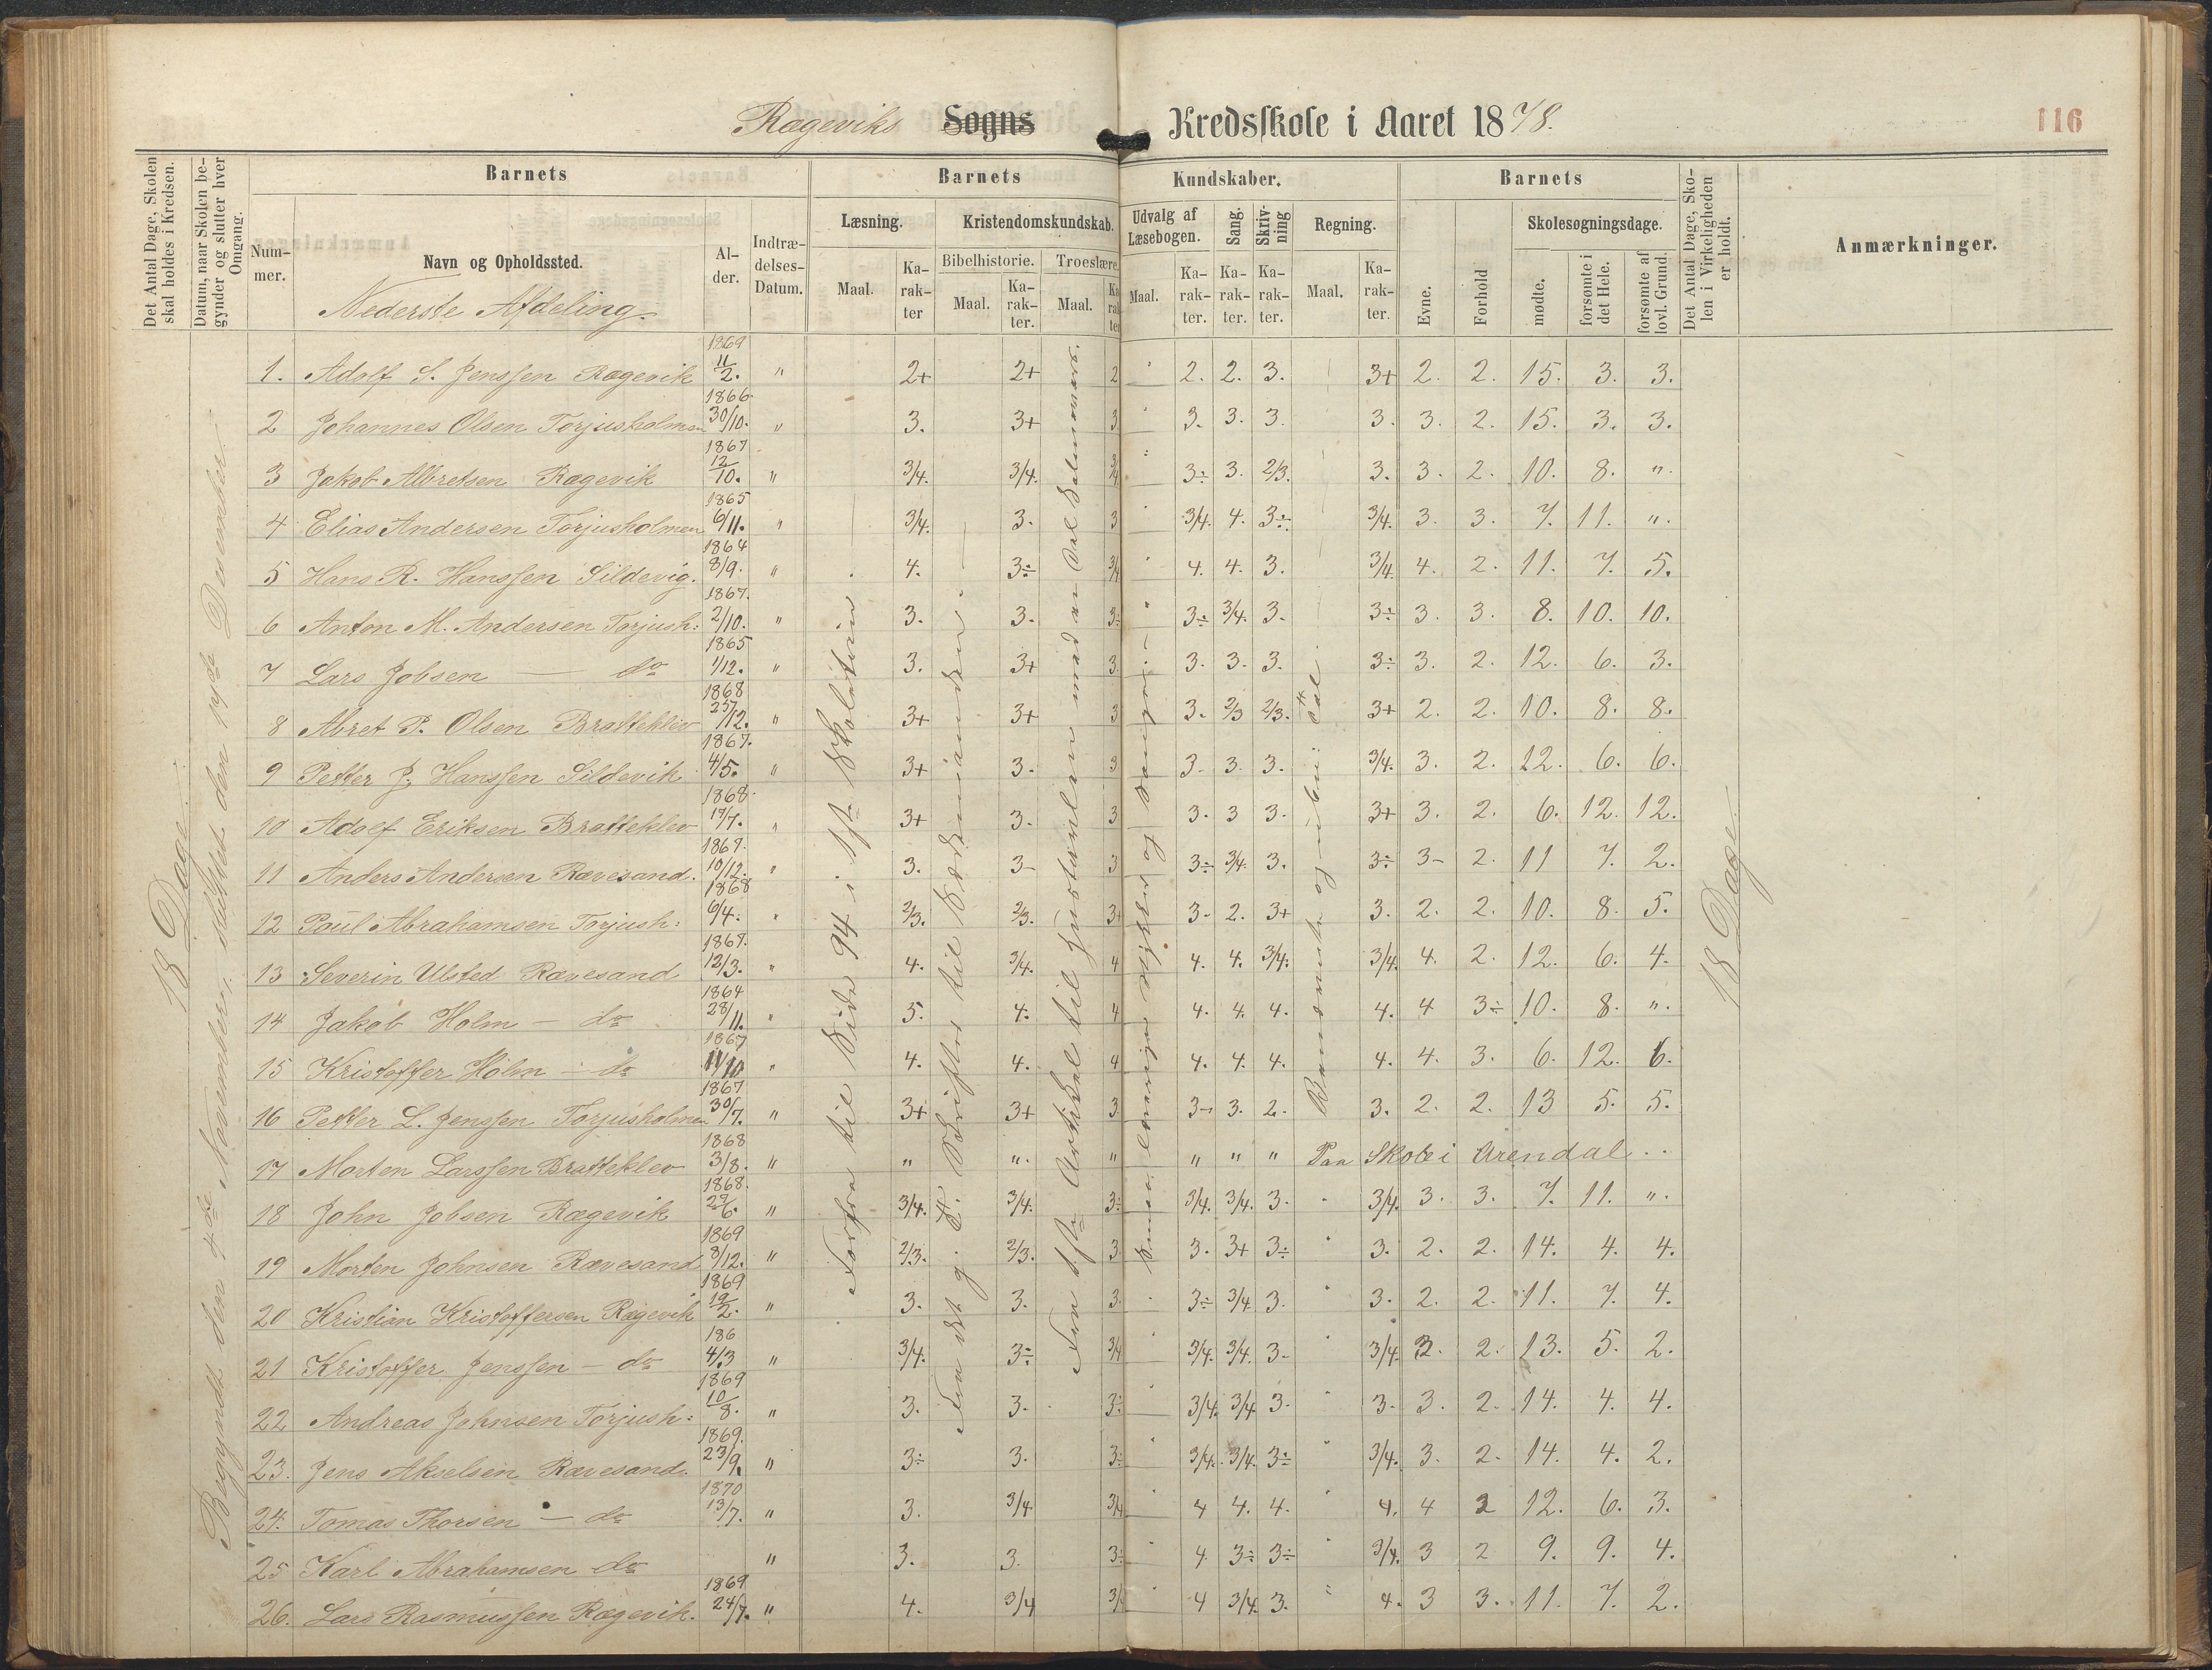 Rægeviks Sogns Kredsskole i Aaret 1878.
116
Det Antal Dage, Skolen skal holdes i Kredsen.
Datum, naar Skolen begynder og slutter hver Omgang.
Barnets
Barnets
Kundskaber.
Barnets
Det Antal Dage, Skolen i Virkeligheden er holdt.
Anmærkninger.
Nummer.
Navn og Opholdssted.
Alder.
Indtrædelses-Datum.
Læsning.
Kristendomskundskab.
Udvalg af Læsebogen.
Sang.
Skrivning
Regning.
Skolesøgningsdage.
Bibelhistorie.
Troeslære.
Maal.
Karakter
Maal.
Karakter.
Maal.
Karakter
Maal.
Karakter.
Karakter.
Karakter.
Maal.
Karakter.
Evne.
Forhold
mødte.
forsømte i det Hele.
forsømte af lovl. Grund.
Nederste Afdeling.
18 Dage.
Begyndt den 4de November, sluttet den 19de December.
1. Adolf S. Jenssen Rægevik 1869 11/2. " 2+ 2+ 2 " 2. 2. 3. 3+ 2. 2. 15. 3. 3.
2 Johannes Olsen Torjusholmen 1866 30/10. " 3. 3+ 3 " 3. 3. 3. 3. 3. 2. 15. 3. 3.
3 Jakob Albretsen Rægevik 1867 12/10. " 3/4. 3/4. 3/4 " 3÷ 3. 2/3. 3. 3. 2. 10. 8. ".
4 Elias Andersen Torjusholmen 1865 6/11. " 3/4. 3. 3 " 3/4. 4. 3÷ 3/4. 3. 3. 7. 11. ".
5 Hans R. Hanssen Sildevig. 1864 8/9. " 4. 3÷ 3/4 " 4. 4. 3. 3/4 4. 2. 11. 7. 5.
6 Anton M. Andersen Torjush: 1867. 2/10. " 3. 3. 3÷ " 3÷ 3/4. 3. 3÷ 3. 3. 8. 10. 10.
7 Lars Jobsen — do 1865 1/12. " 3. 3+ 3 3. 3. 3. 3÷ 3. 2. 12. 6. 3.
8 Abret P. Olsen Bratteklev 1868 25/12. " 3+ 3+ 3 3. 2/3 2/3. 3+ 2. 2. 10. 8. 8.
9 Petter J. Hanssen Sildevik 1867. 4/5. " 3+ 3. 3 3. 3. 3. 3/4. 3. 2. 12. 6. 6.
10 Adolf Eriksen Bratteklev 1868. 17/7. " 3+ 3. 3 3. 3 3. 3+ 3. 2. 6. 12. 12.
11 Anders Andersen Rævesand. 1867. 10/12. " 3. 3- 3 3÷ 3/4. 3. 3÷ 3- 2. 11 7. 2.
12 Poul Abrahamsen Torjush: 1868 6/4. " 2/3. 2/3. 3+ 3- 2. 3+ 3. 2. 2. 10. 8. 5.
13 Severin Ulsted Rævesand 1867. 12/3. " 4. 3/4. 4 4. 4. 3/4. 3/4. 4. 2. 12. 6. 4.
14 Jakob Holm — do 1864 28/11. " 5. 4. 4 4. 4. 4. 4. 4 3÷ 10. 8. ".
15 Kristoffer Holm — do 1867 11/10 " 4. 4. 4 4. 4. 4. 4. 4. 3. 6. 12. 6.
16 Petter L. Jenssen Torjusholmen 1867 30/7. " 3+ 3+ 3 3- 3. 2. 3. 2. 2. 13 5. 5.
17 Morten Larssen Bratteklev 1868 3/8. " " " " " " " Paa Skole i Arendal..
18 John Jobsen Rægevik 1868. 29/6. " 3/4. 3/4. 3÷ 3/4. 3/4. 3. " 3/4. 3. 3. 7. 11. ".
19 Morten Johnsen Rævesand 1869 8/12. " 2/3. 2/3. 3 3. 3+ 3÷ " 3. 2. 2. 14. 4. 4.
20 Kristian Kristoffersen Rægevik 1869 19/2. " 3. 3. 3. 3÷ 3/4 3. " 3. 2. 2. 11. 7. 4.
21 Kristoffer Jenssen — do 186 4/3 " 3/4. 3÷ 3/4 " 3/4. 3/4. 3- " 3/4 3. 2. 13. 5. 2.
22 Andreas Johnsen Torjush: 1869 10/8. " 3. 3. 3÷ " 3/4. 3/4 3. " 3. 3. 2. 14. 4. 4.
23. Jens Akselsen Rævesand. 1869. 23/9. " 3÷ 3. 3÷ " 3/4. 3/4. 3÷ " 3/4. 3. 2. 14. 4. 2.
24. Tomas Thorsen — do 1870 13/7. " 3. 3/4. 3/4 " 4 4. 4. " 4. 4 3 12. 6. 3.
25 Karl Abrahamsen do " 3. 3. 3÷ " 4. 3÷ 3÷ " 3/4. 3 2 9. 9. 4.
26. Lars Rasmussen Rægevik. 1869 24/7. " 4. 3/4 3/4 " 4 3/4. 3. " 4. 3 3. 11. 7. 2.
Forfra til Side 94 i 1ste Skoletrin.
Fra det g. T. Skrifter til
Fra 1ste Artikel til
og Sange.
18 Dage.